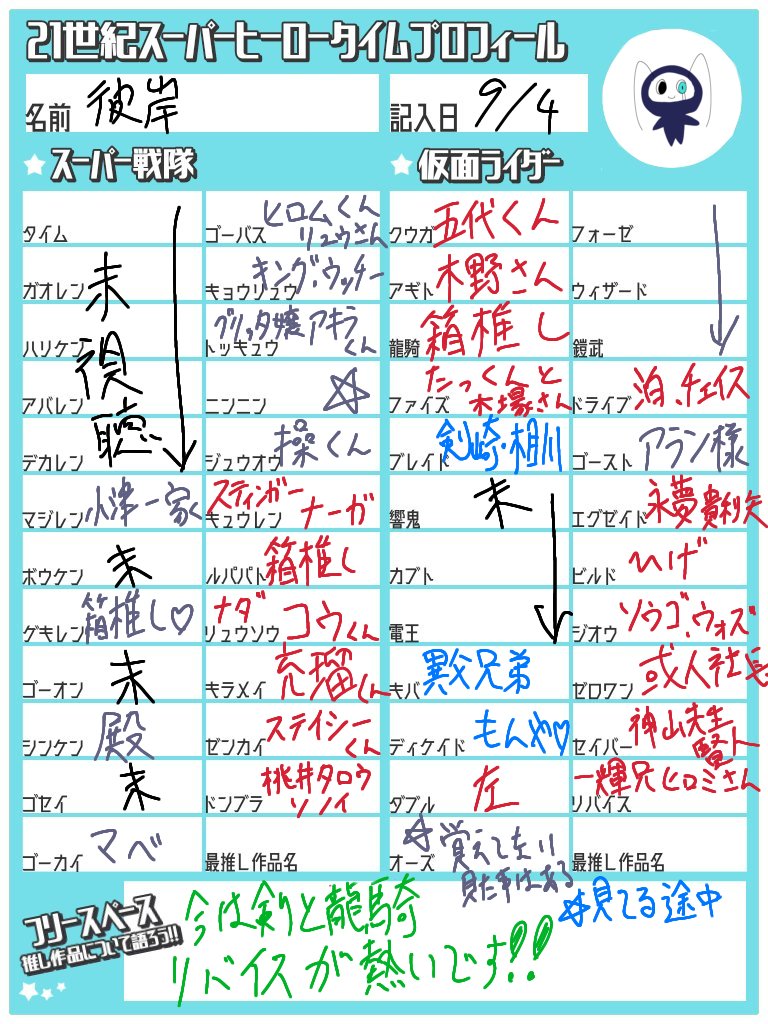 21世紀スーパーヒーロータイムプロフィール
名前 彼岸
記入日 9/4
スーパー戦隊
タイム
ガオレン
ハリケン
アバレン
デカレン
未視聴
マジレン 小津一家
ボウケン 未
ゲキレン 箱推し♡
ゴーオン 未
シンケン 殿
ゴセイ 未
ゴーカイ マベ
ゴーバス ヒロムくん
リュウさん
キョウリュウ キング、ウッチー
トッキュウ グリッタ嬢 アキラ
くん
ニンニン ☆
ジュウオウ 操くん
キュウレン スティンガー
ナーガ
ルパパト 箱推し
リュウソウ ナダ
コウくん
キラメイ 充瑠くん
ゼンカイ ステイシー
くん
ドンブラ 桃井タロウ
ソノイ
最推し作品名
仮面ライダー
クウガ 五代くん
アギト 木野さん
龍騎 箱推し
ファイズ たっくんと
木場さん
ブレイド 剣崎・相川
響鬼 未
カブト
電王
キバ 異父兄弟
ディケイド もんや♡
ダブル 左
オーズ ☆覚えてない
見た事はある
フォーゼ
ウィザード
鎧武
ドライブ 泊、チェイス
ゴースト アラン様
エグゼイド 永夢 貴利矢
ビルド ひげ
ジオウ ソウゴ、ウォズ
ゼロワン 或人社長
セイバー 神山先生
賢人
リバイス 一輝兄ヒロミさん
最推し作品名
フリースペース
推し作品について語ろう!!
今は剣と龍騎
リバイスが熱いです!!
☆見てる途中